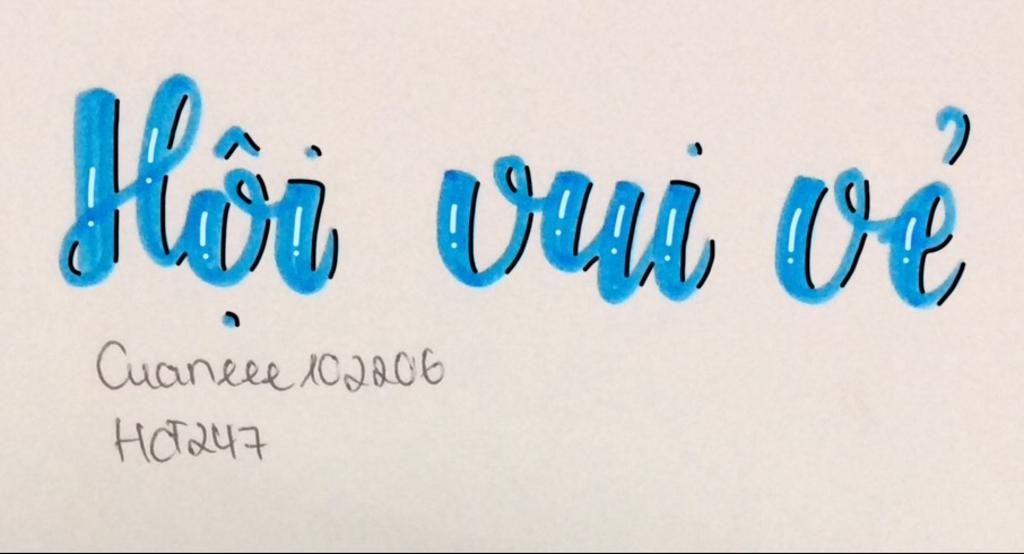 Hội vui vẻ
Cuaneee102206
HCT247